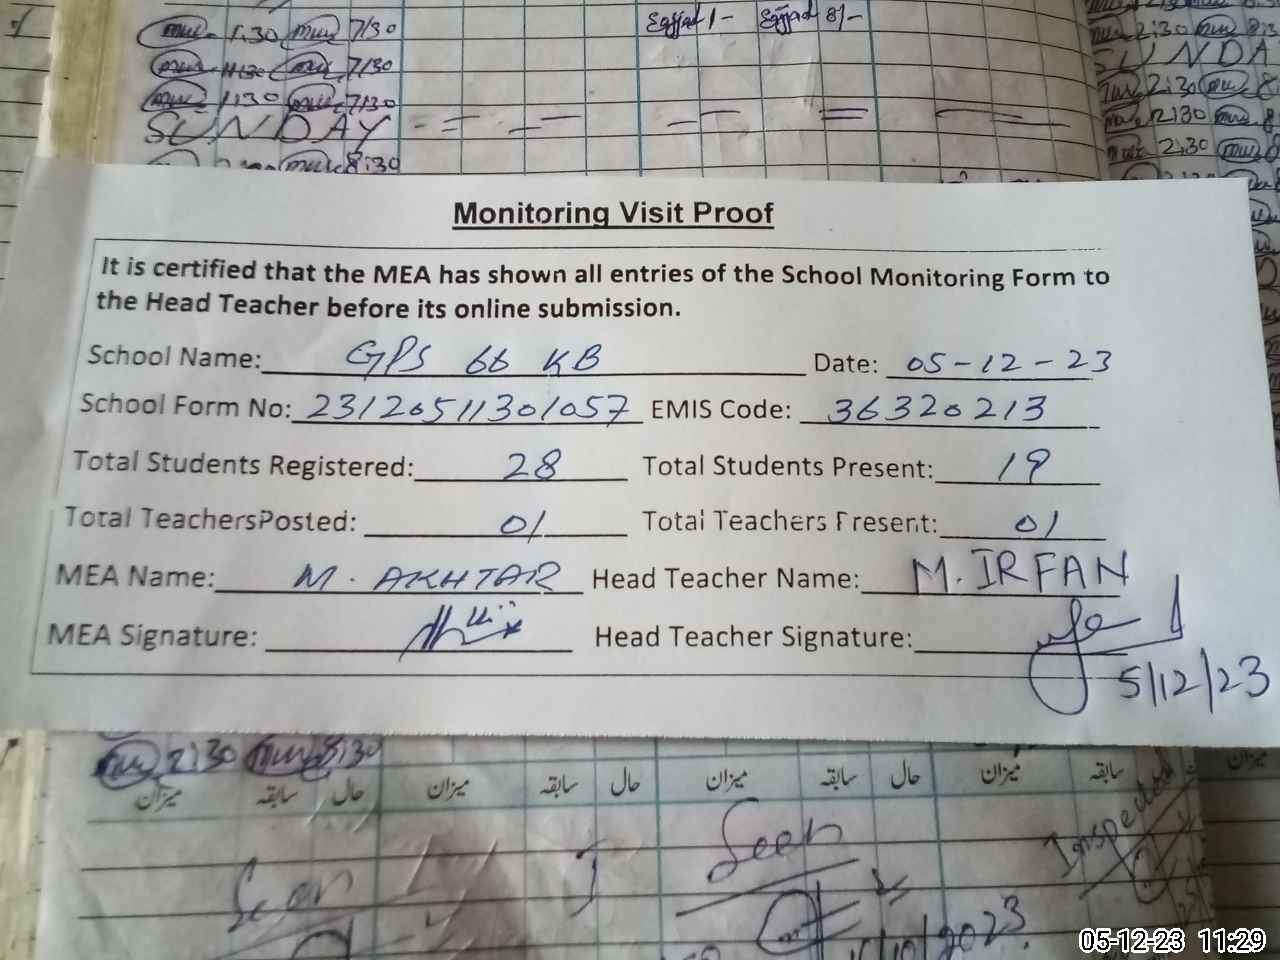 1:30 7/30 Egjjad 1- Egjjad 8/-
11:30 7/30
1:30 7/30
SUNDAY
8:30
2:30 8:3
SUNDA
2:30 8
2:30 8
2:30
Monitoring Visit Proof
It is certified that the MEA has shown all entries of the School Monitoring Form to
the Head Teacher before its online submission.
School Name: GPS 66 KB Date: 05-12-23
School Form No: 23120511301057 EMIS Code: 36320213
Total Students Registered: 28 Total Students Present: 19
Total TeachersPosted: 01 Total Teachers Present: 01
MEA Name: M. AKHTAR Head Teacher Name: M. IRFAN
MEA Signature: Head Teacher Signature:
5/12/23
2:30 8:30
میزان سابقہ حال میزان سابقہ حال میزان سابقہ حال میزان سابقہ میزان
Seen Seen Inspected
/10/2023
05-12-23 11:29